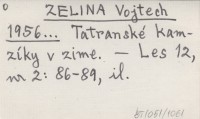 0
ZELINA Vojtech
1956... Tatranské kam-
zíky v zime. — Les 12,
nr 2: 86-89, il.